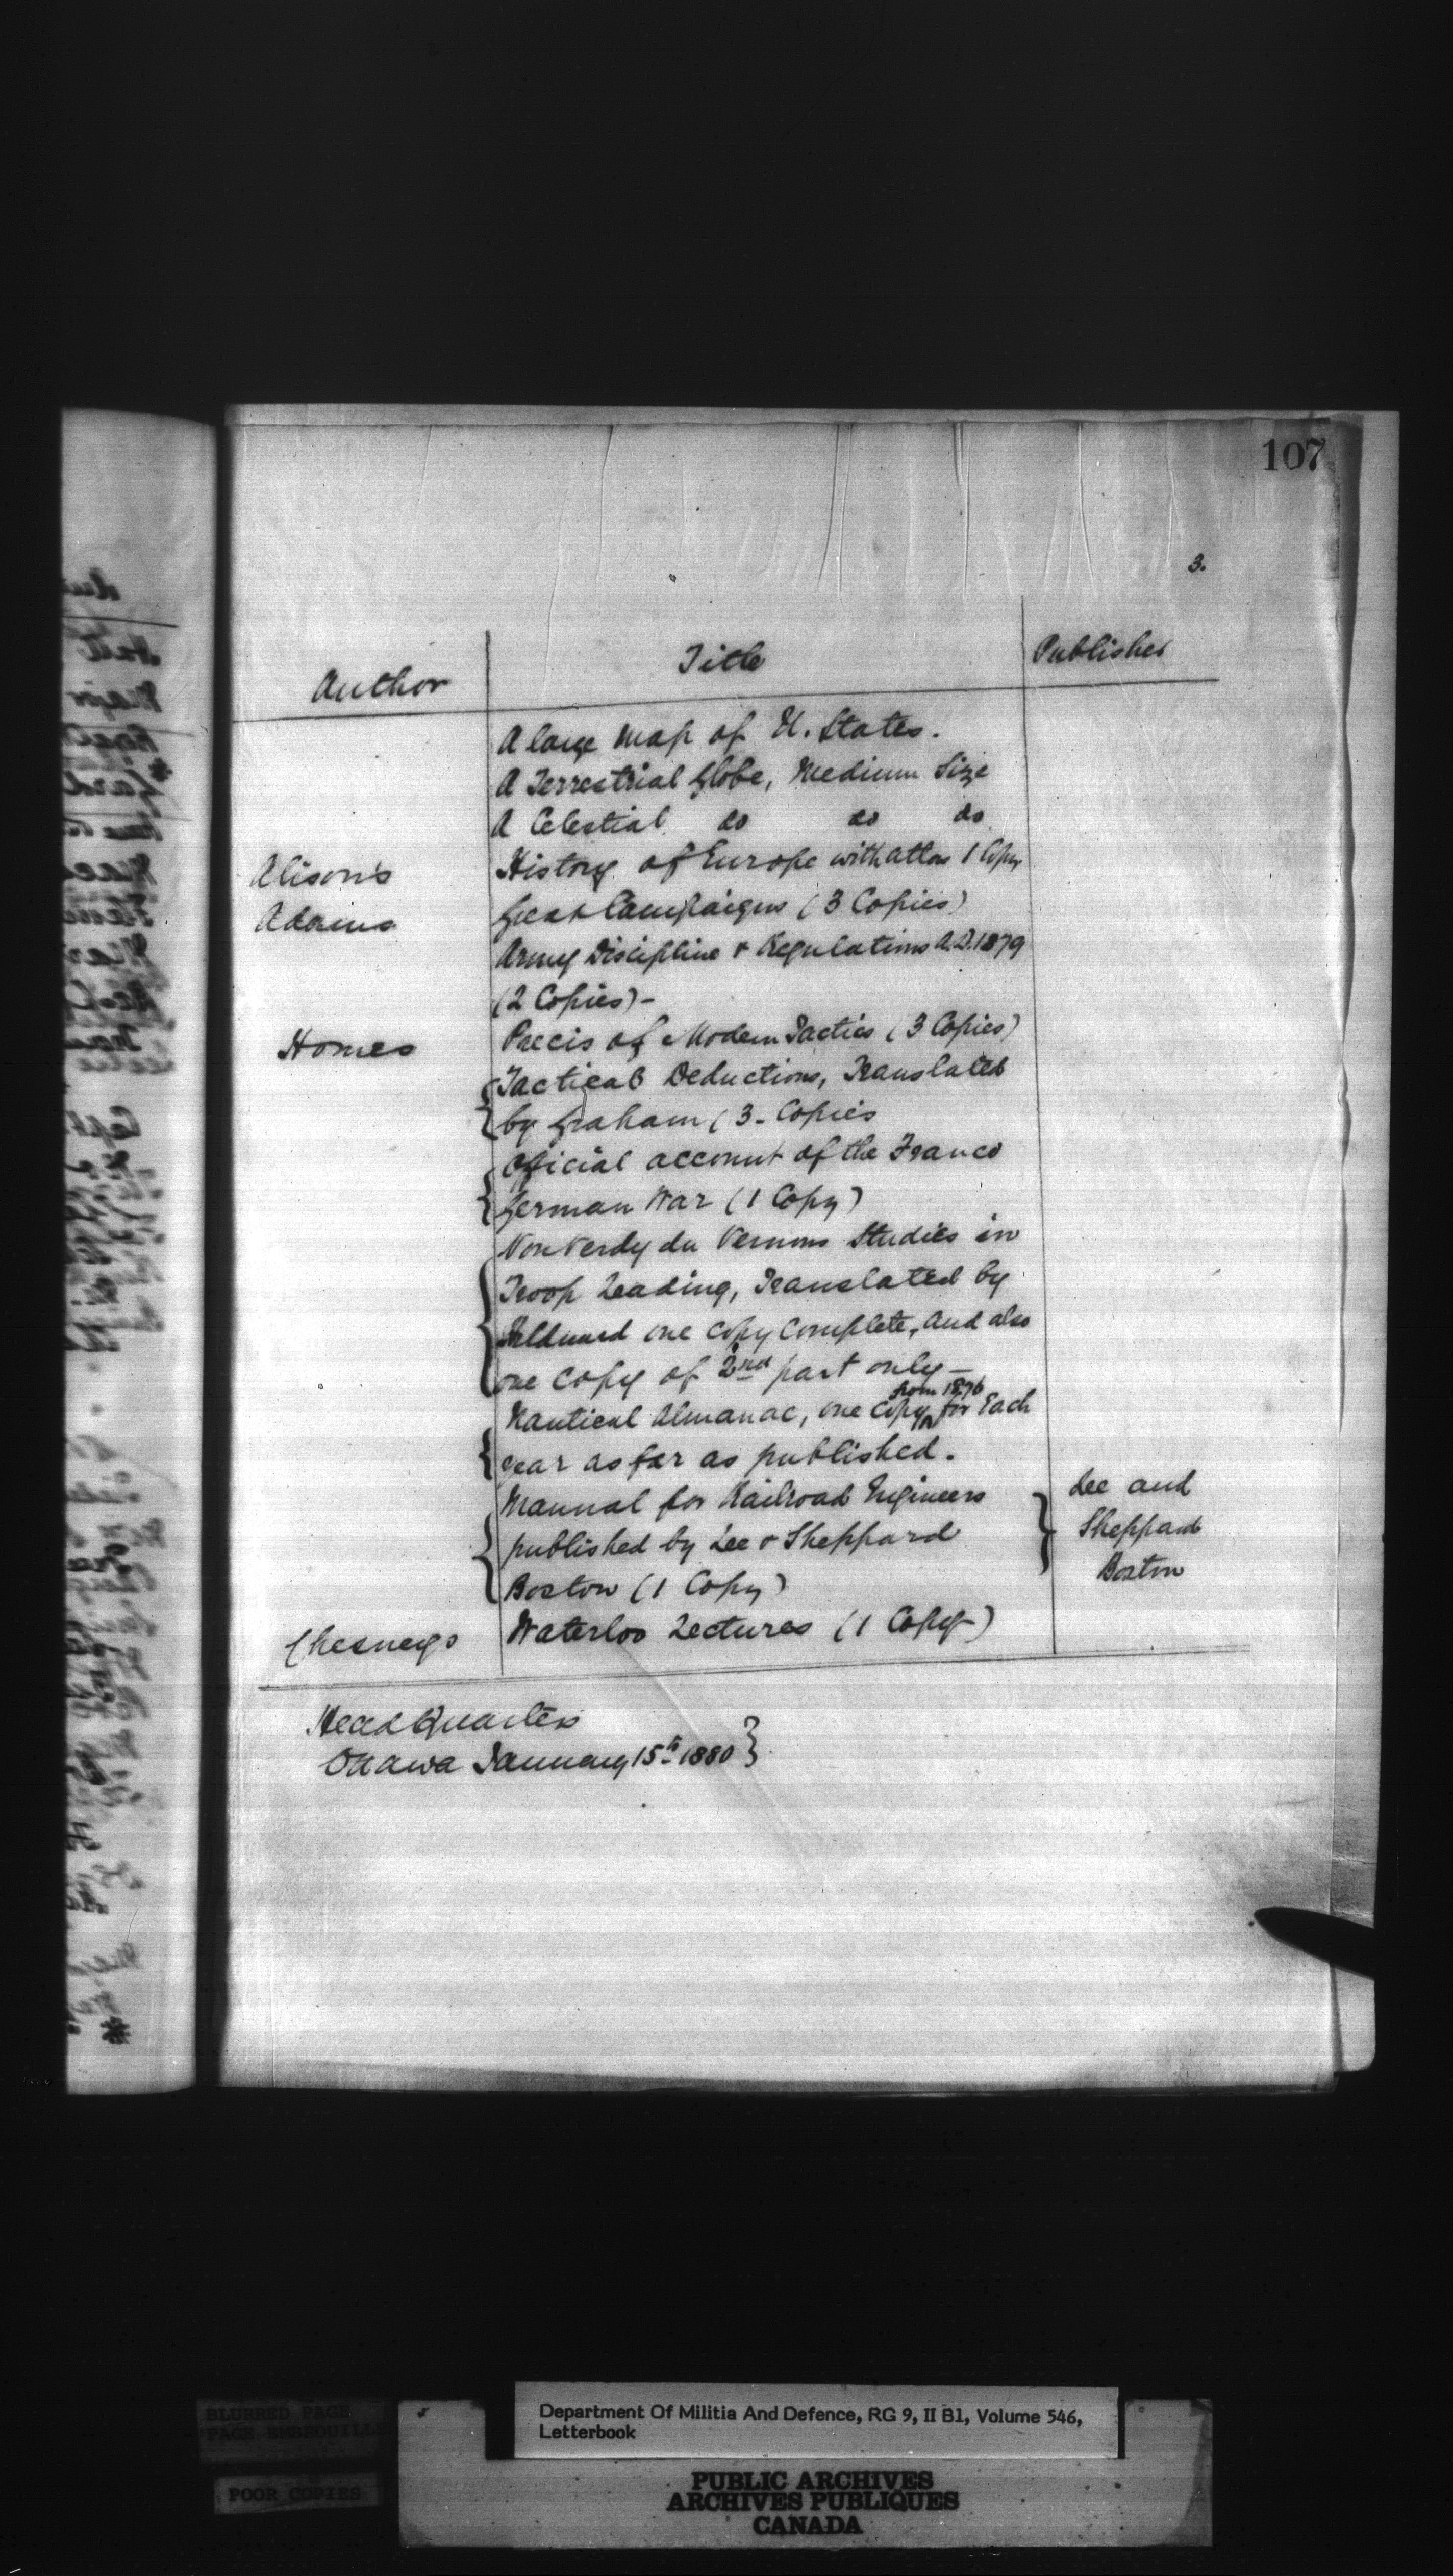 107
3.
Author Title Publisher
A large Map of U. States.
A Terrestrial Globe, Medium Size
A Celestial do do do
Alison's History of Europe with atlas 1 Copy
Adams Great Campaigns (3 Copies)
Army Discipline & Regulations A.D. 1879
(2 Copies) -
Homes Precis of Modern Tactics (3 Copies)
Tactical Deductions, Translated
by Graham (3 - Copies
Official account of the Franco
German War (1 Copy)
Von Verdy du Vernons Studies in
Troop Leading, Translated by
one copy complete, and also
one copy of 2nd part only -
from 1876
Nautical Almanac, one copy for Each
year as far as published.
Manual for Railroad Engineers Lee and
published by Lee & Sheppard Sheppard
Boston (1 Copy) Boston
Chesneys Waterloo Lectures (1 Copy)
Head Quarters
Ottawa January 15th 1880
BLURRED PAGE
PAGE EMBROUILL
POOR COPIES
Department Of Militia And Defence, RG 9, II B1, Volume 546,
Letterbook
PUBLIC ARCHIVES
ARCHIVES PUBLIQUES
CANADA